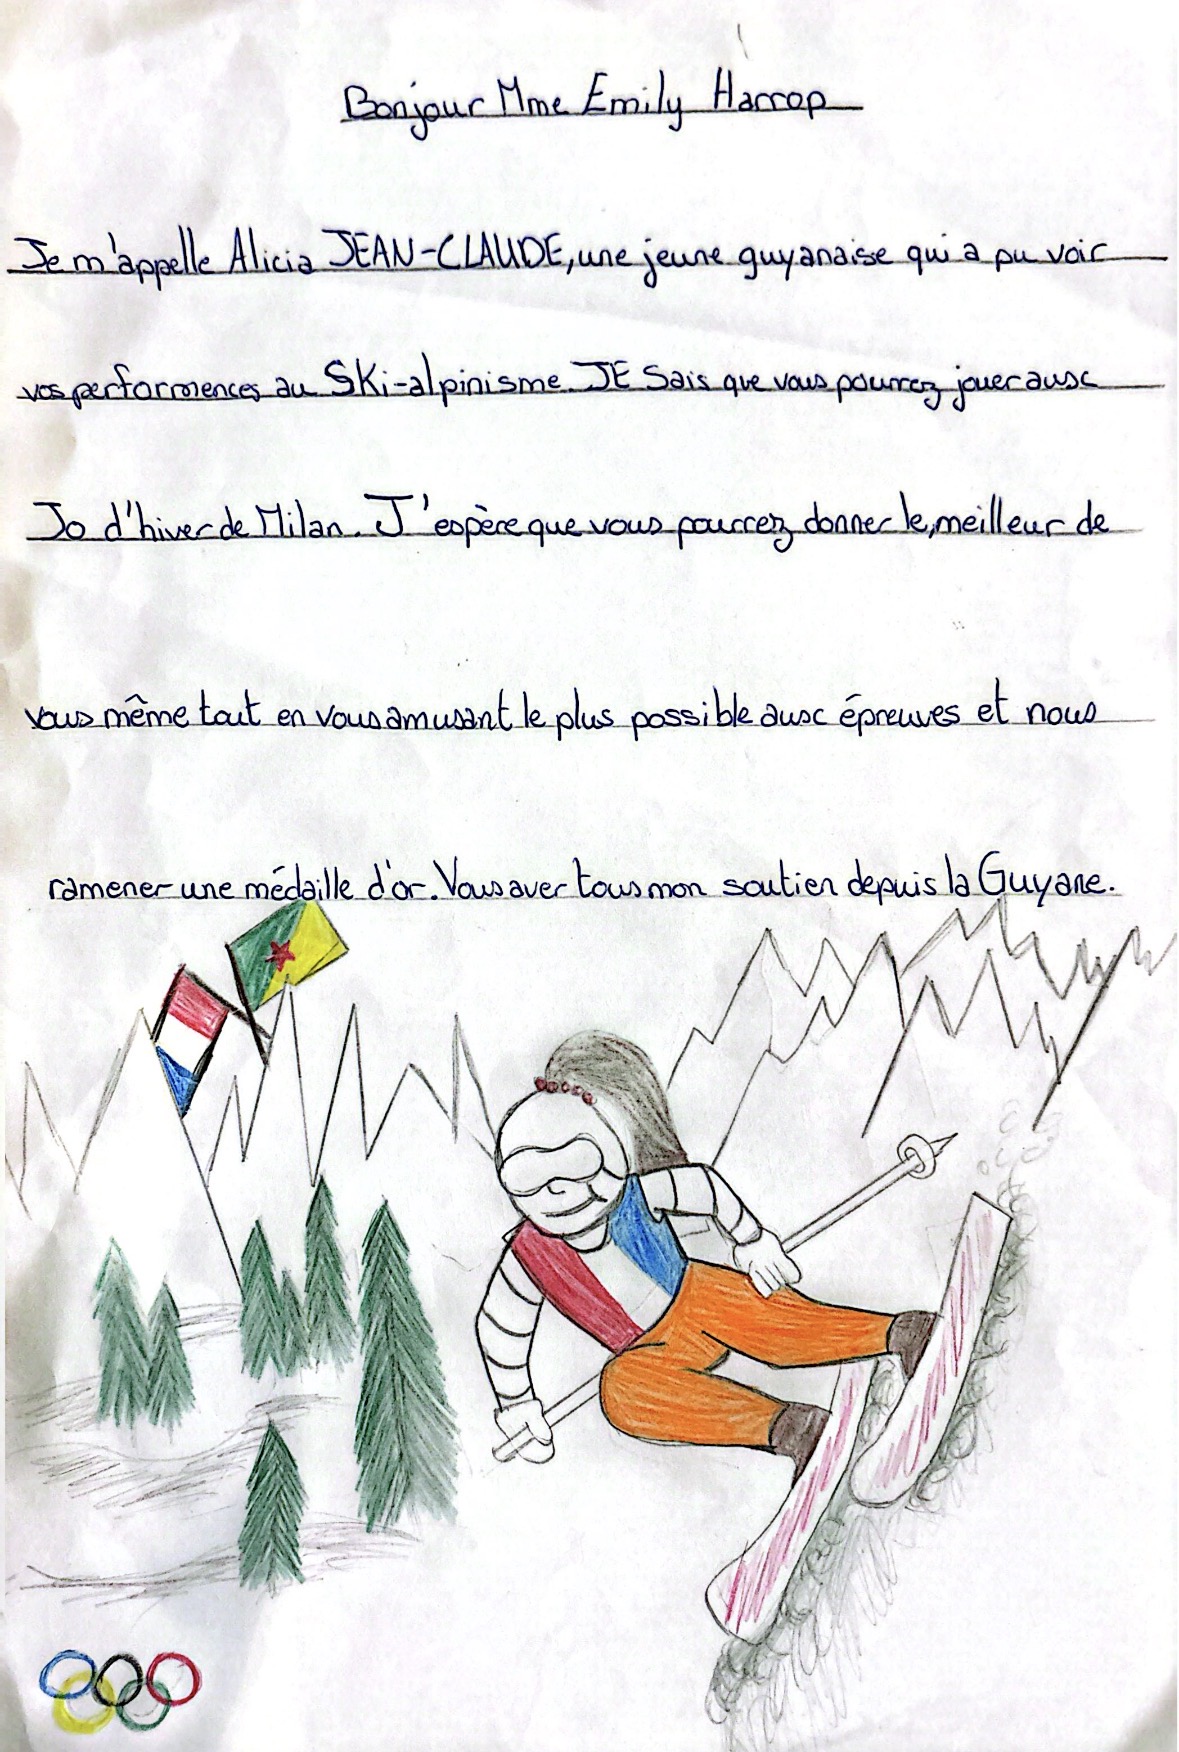 Bonjour Mme Emily Harrop
Je m'appelle Alicia JEAN-CLAUDE, une jeune guyanaise qui a pu voir
vos performences au SKi-alpinisme. JE Sais que vous pourrez jouer aux
Jo d'hiver de Milan. J'espère que vous pourrez donner le, meilleur de
vous même tout en vous amusant le plus possible aux épreuves et nous
ramener une médaille d'or. Vous aver tous mon soutien depuis la Guyane.